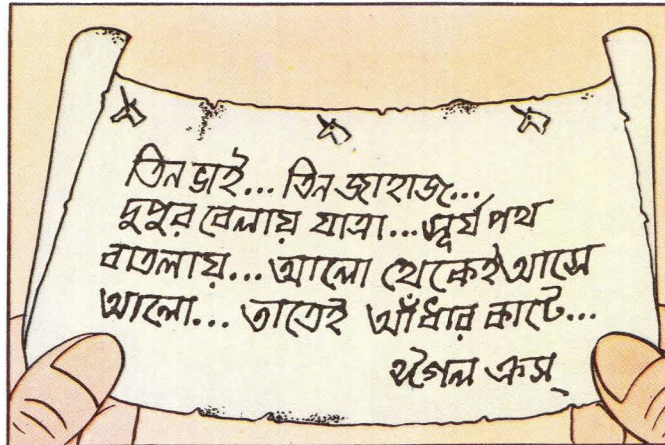 তিন ভাই... তিন জাহাজ...
দুপুর বেলায় যাত্রা... সূর্য পথ
বাতলায়... আলো থেকেই আসে
আলো... তাতেই আঁধার কাটে...
ঈগল ক্রস্